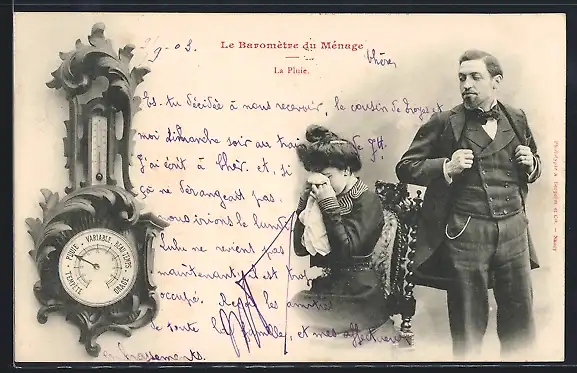 9-03.
Le Baromètre du Ménage
La Pluie.
Es-tu décidée à nous recevoir, le cousin de Troyes et
moi dimanche soir au train de 7h.
J'ai écrit à et, si
ça ne dérangeait pas
nous irions le lundi
Lulu ne revient pas
maintenant, il est trop
occupé. les amitiés
de toute la famille, et mes affectueux
embrassements.
TEMPÊTE PLUIE VARIABLE BEAU TEMPS ORAGE
Phototypie A. Bergeret et Cie. — Nancy